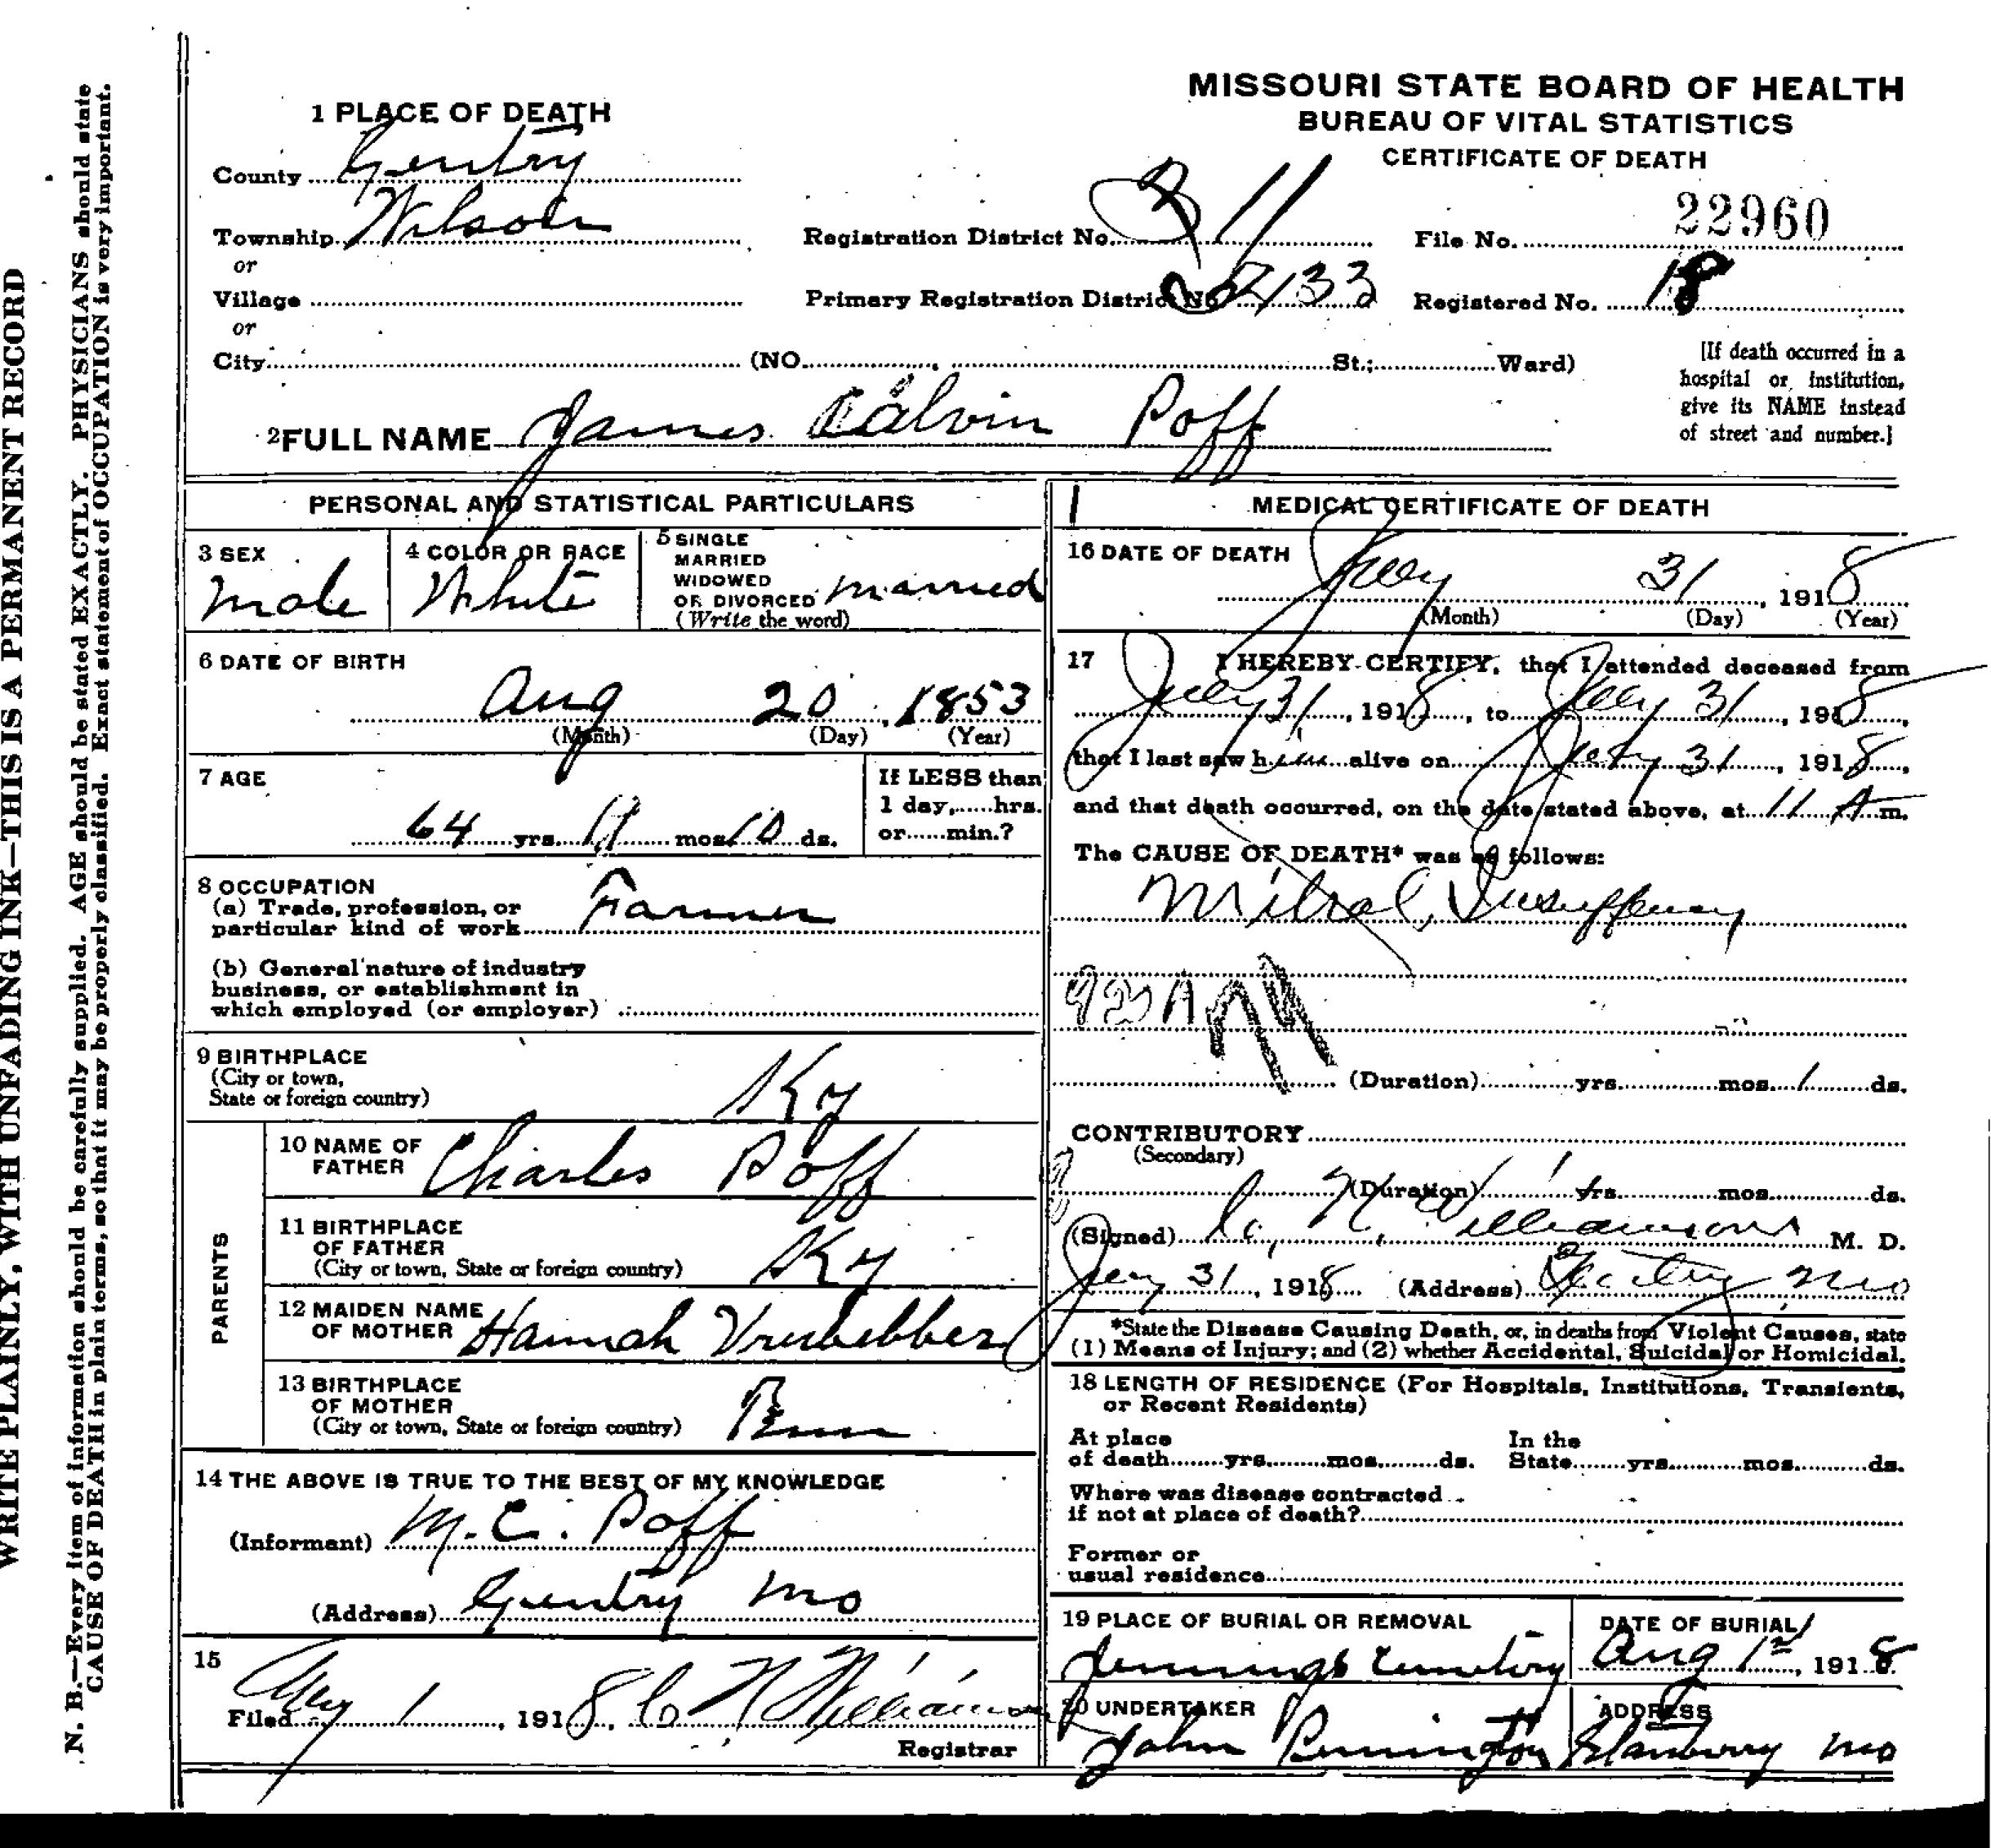 WRITE PLAINLY, WITH UNFADING INK—THIS IS A PERMANENT RECORD
N. B.—Every item of information should be carefully supplied. AGE should be stated EXACTLY. PHYSICIANS should state
CAUSE OF DEATH in plain terms, so that it may be properly classified. Exact statement of OCCUPATION is very important.
MISSOURI STATE BOARD OF HEALTH
BUREAU OF VITAL STATISTICS
CERTIFICATE OF DEATH
1 PLACE OF DEATH
County Gentry
Township Wilson
or
Village
or
City (NO. St.; Ward)
Registration District No. 311
Primary Registration District No. 133
File No. 22960
Registered No. 18
[If death occurred in a
hospital or institution,
give its NAME instead
of street and number.]
2 FULL NAME James Calvin Poff
PERSONAL AND STATISTICAL PARTICULARS
3 SEX
Male
4 COLOR OR RACE
White
5 SINGLE
MARRIED
WIDOWED
OR DIVORCED
(Write the word)
Married
6 DATE OF BIRTH
Aug 20, 1853
(Month) (Day) (Year)
7 AGE
64 yrs. 11 mos. 10 ds.
If LESS than
1 day,......hrs.
or......min.?
8 OCCUPATION
(a) Trade, profession, or
particular kind of work Farmer
(b) General nature of industry
business, or establishment in
which employed (or employer)
9 BIRTHPLACE
(City or town,
State or foreign country)
Ky
PARENTS
10 NAME OF
FATHER Charles Poff
11 BIRTHPLACE
OF FATHER
(City or town, State or foreign country) Ky
12 MAIDEN NAME
OF MOTHER Hannah
13 BIRTHPLACE
OF MOTHER
(City or town, State or foreign country)
14 THE ABOVE IS TRUE TO THE BEST OF MY KNOWLEDGE
(Informant) M. C. Poff
(Address) Gentry Mo
15
Filed Aug 1, 1918, C N Williamson
Registrar
MEDICAL CERTIFICATE OF DEATH
16 DATE OF DEATH
July 31, 1918
(Month) (Day) (Year)
17 I HEREBY CERTIFY, that I attended deceased from
July 31, 1918, to July 31, 1918,
that I last saw him alive on July 31, 1918,
and that death occurred, on the date stated above, at 11 A m.
The CAUSE OF DEATH* was as follows:
Mitral
(Duration) yrs. mos. 1 ds.
CONTRIBUTORY
(Secondary)
(Duration) yrs. mos. ds.
(Signed) C. N. Williamson M. D.
July 31, 1918 (Address) Gentry Mo
*State the Disease Causing Death, or, in deaths from Violent Causes, state
(1) Means of Injury; and (2) whether Accidental, Suicidal or Homicidal.
18 LENGTH OF RESIDENCE (For Hospitals, Institutions, Transients,
or Recent Residents)
At place
of death yrs. mos. ds.
In the
State yrs. mos. ds.
Where was disease contracted
if not at place of death?
Former or
usual residence
19 PLACE OF BURIAL OR REMOVAL
Jennings Cemetery
DATE OF BURIAL
Aug 1st, 1918
20 UNDERTAKER
John
ADDRESS
Stanberry Mo